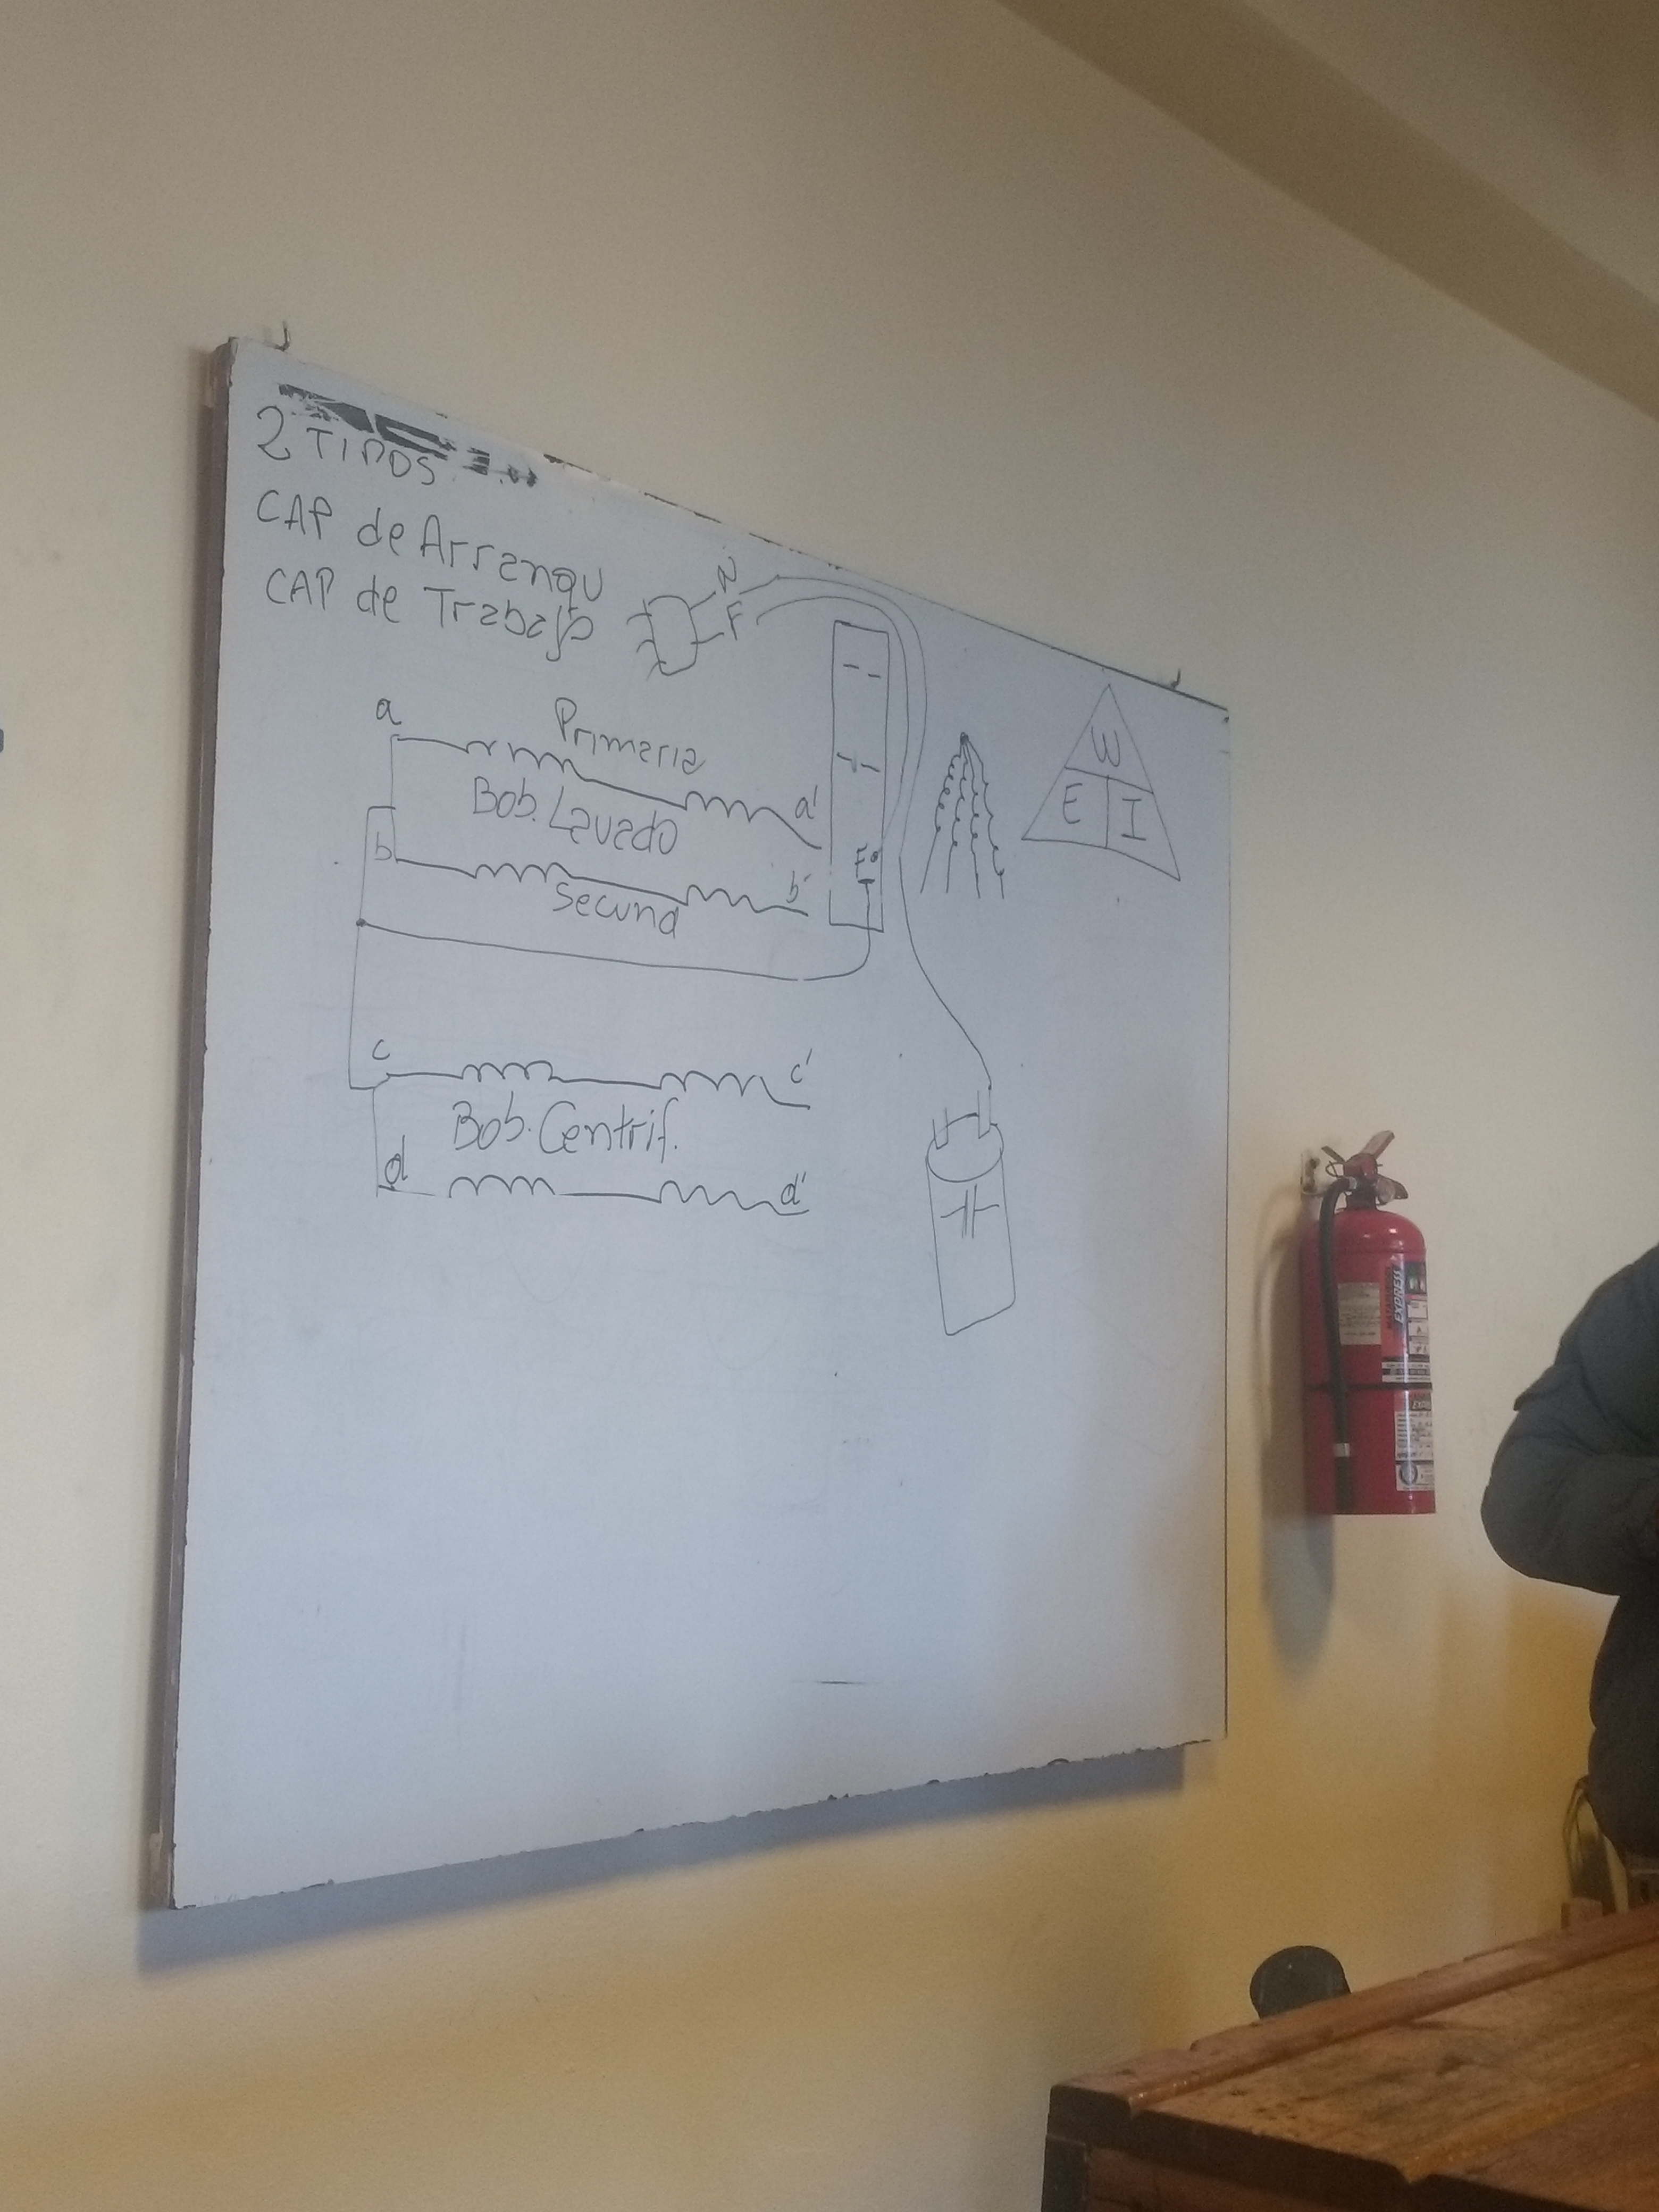 2 TIPOS
CAP de Arranqu
CAP de Trabajo
N
F
a
Primaria
a'
Bob. Lavado
b
b'
Secund
W
E I
c
c'
Bob. Centrif.
d
d'
EXPRESS